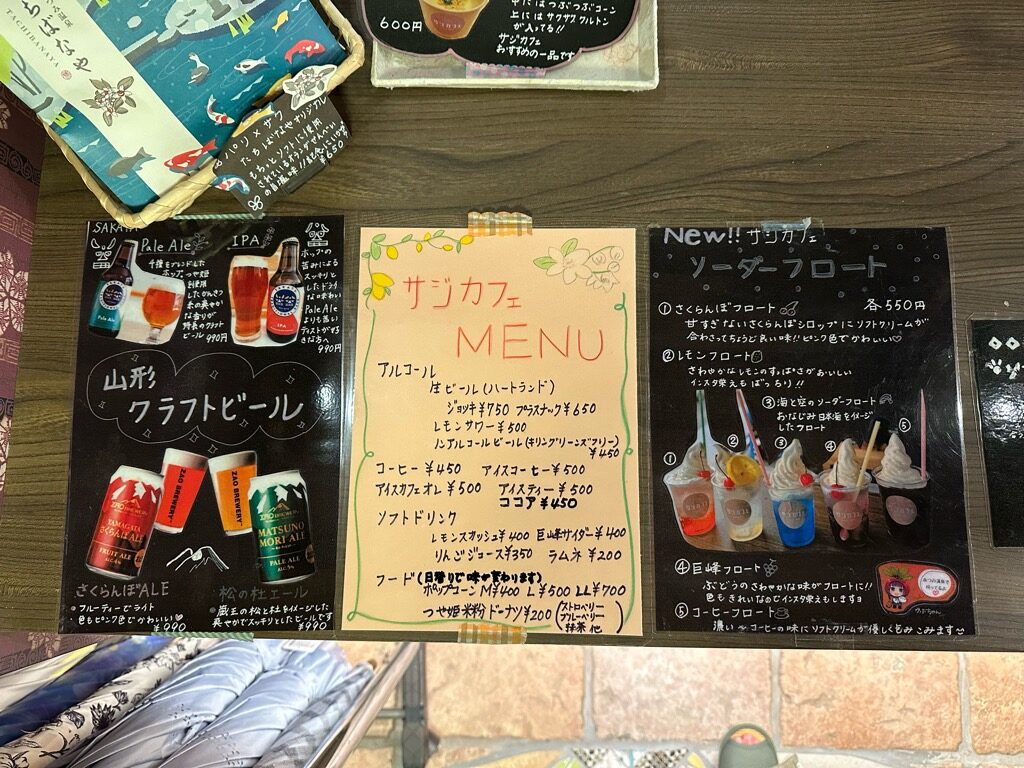 ちばなや
TACHIBANAYA
パリ×サク
たちばなやオリジナル
もちっとソフトに使用
されているオランダせんべい
の自慢味!!
¥650
600円
中にはつぶつぶコーン
上にはサクサククルトン
が入ってる!!
サジカフェ
おすすめの一品です
SAKATA
Pale Ale
IPA
4種をブレンドした
ホップ、つや姫
を使用
した
香りが
特長のクラフト
ビール 990円
ホップの
苦みによる
スッキリと
したドライ
な味わい
Pale Ale
よりも苦い
テイストがすき
な方へ
990円
山形
クラフトビール
ZAO BREWERY
ZAO BREWERY
YAMAGATA
さくらんぼALE
FRUIT ALE
MATSUNO
MORI ALE
PALE ALE
さくらんぼALE
※フルーティーでライト
色もピンク色でかわいい♡
¥990
松の杜エール
※蔵王の松と杜をイメージした
爽やかでスッキリとしたビールです
¥990
サジカフェ
MENU
アルコール
生ビール(ハートランド)
ジョッキ¥750 プラスナック¥650
レモンサワー¥500
ノンアルコールビール(キリングリーンズフリー)
¥450
コーヒー¥450 アイスコーヒー¥500
アイスカフェオレ¥500 アイスティー¥500
ココア¥450
ソフトドリンク
レモンスカッシュ¥400 巨峰サイダー¥400
りんごジュース¥350 ラムネ¥200
フード(日替りで味が変わります)
ポップコーンM¥400 L¥500 LL¥700
つや姫米粉ドーナツ¥200(ストロベリー
ブルーベリー
抹茶 他)
New!! サジカフェ
ソーダーフロート
①さくらんぼフロート 各550円
甘すぎないさくらんぼシロップにソフトクリームが
合わさってちょうど良い味!!ピンク色でかわいい♡
②レモンフロート
さわやかなレモンのすっぱさがおいしい
インスタ栄えもばっちり!!
③海と空のソーダーフロート
おなじみ日本海をイメージ
したフロート
①
②
③
④
⑤
④巨峰フロート
ぶどうのさわやかな味がフロートに!!
色もきれいなのでインスタ栄えもしますョ
⑤コーヒーフロート
濃い〜コーヒーの味にソフトクリームが優しく包みこみます